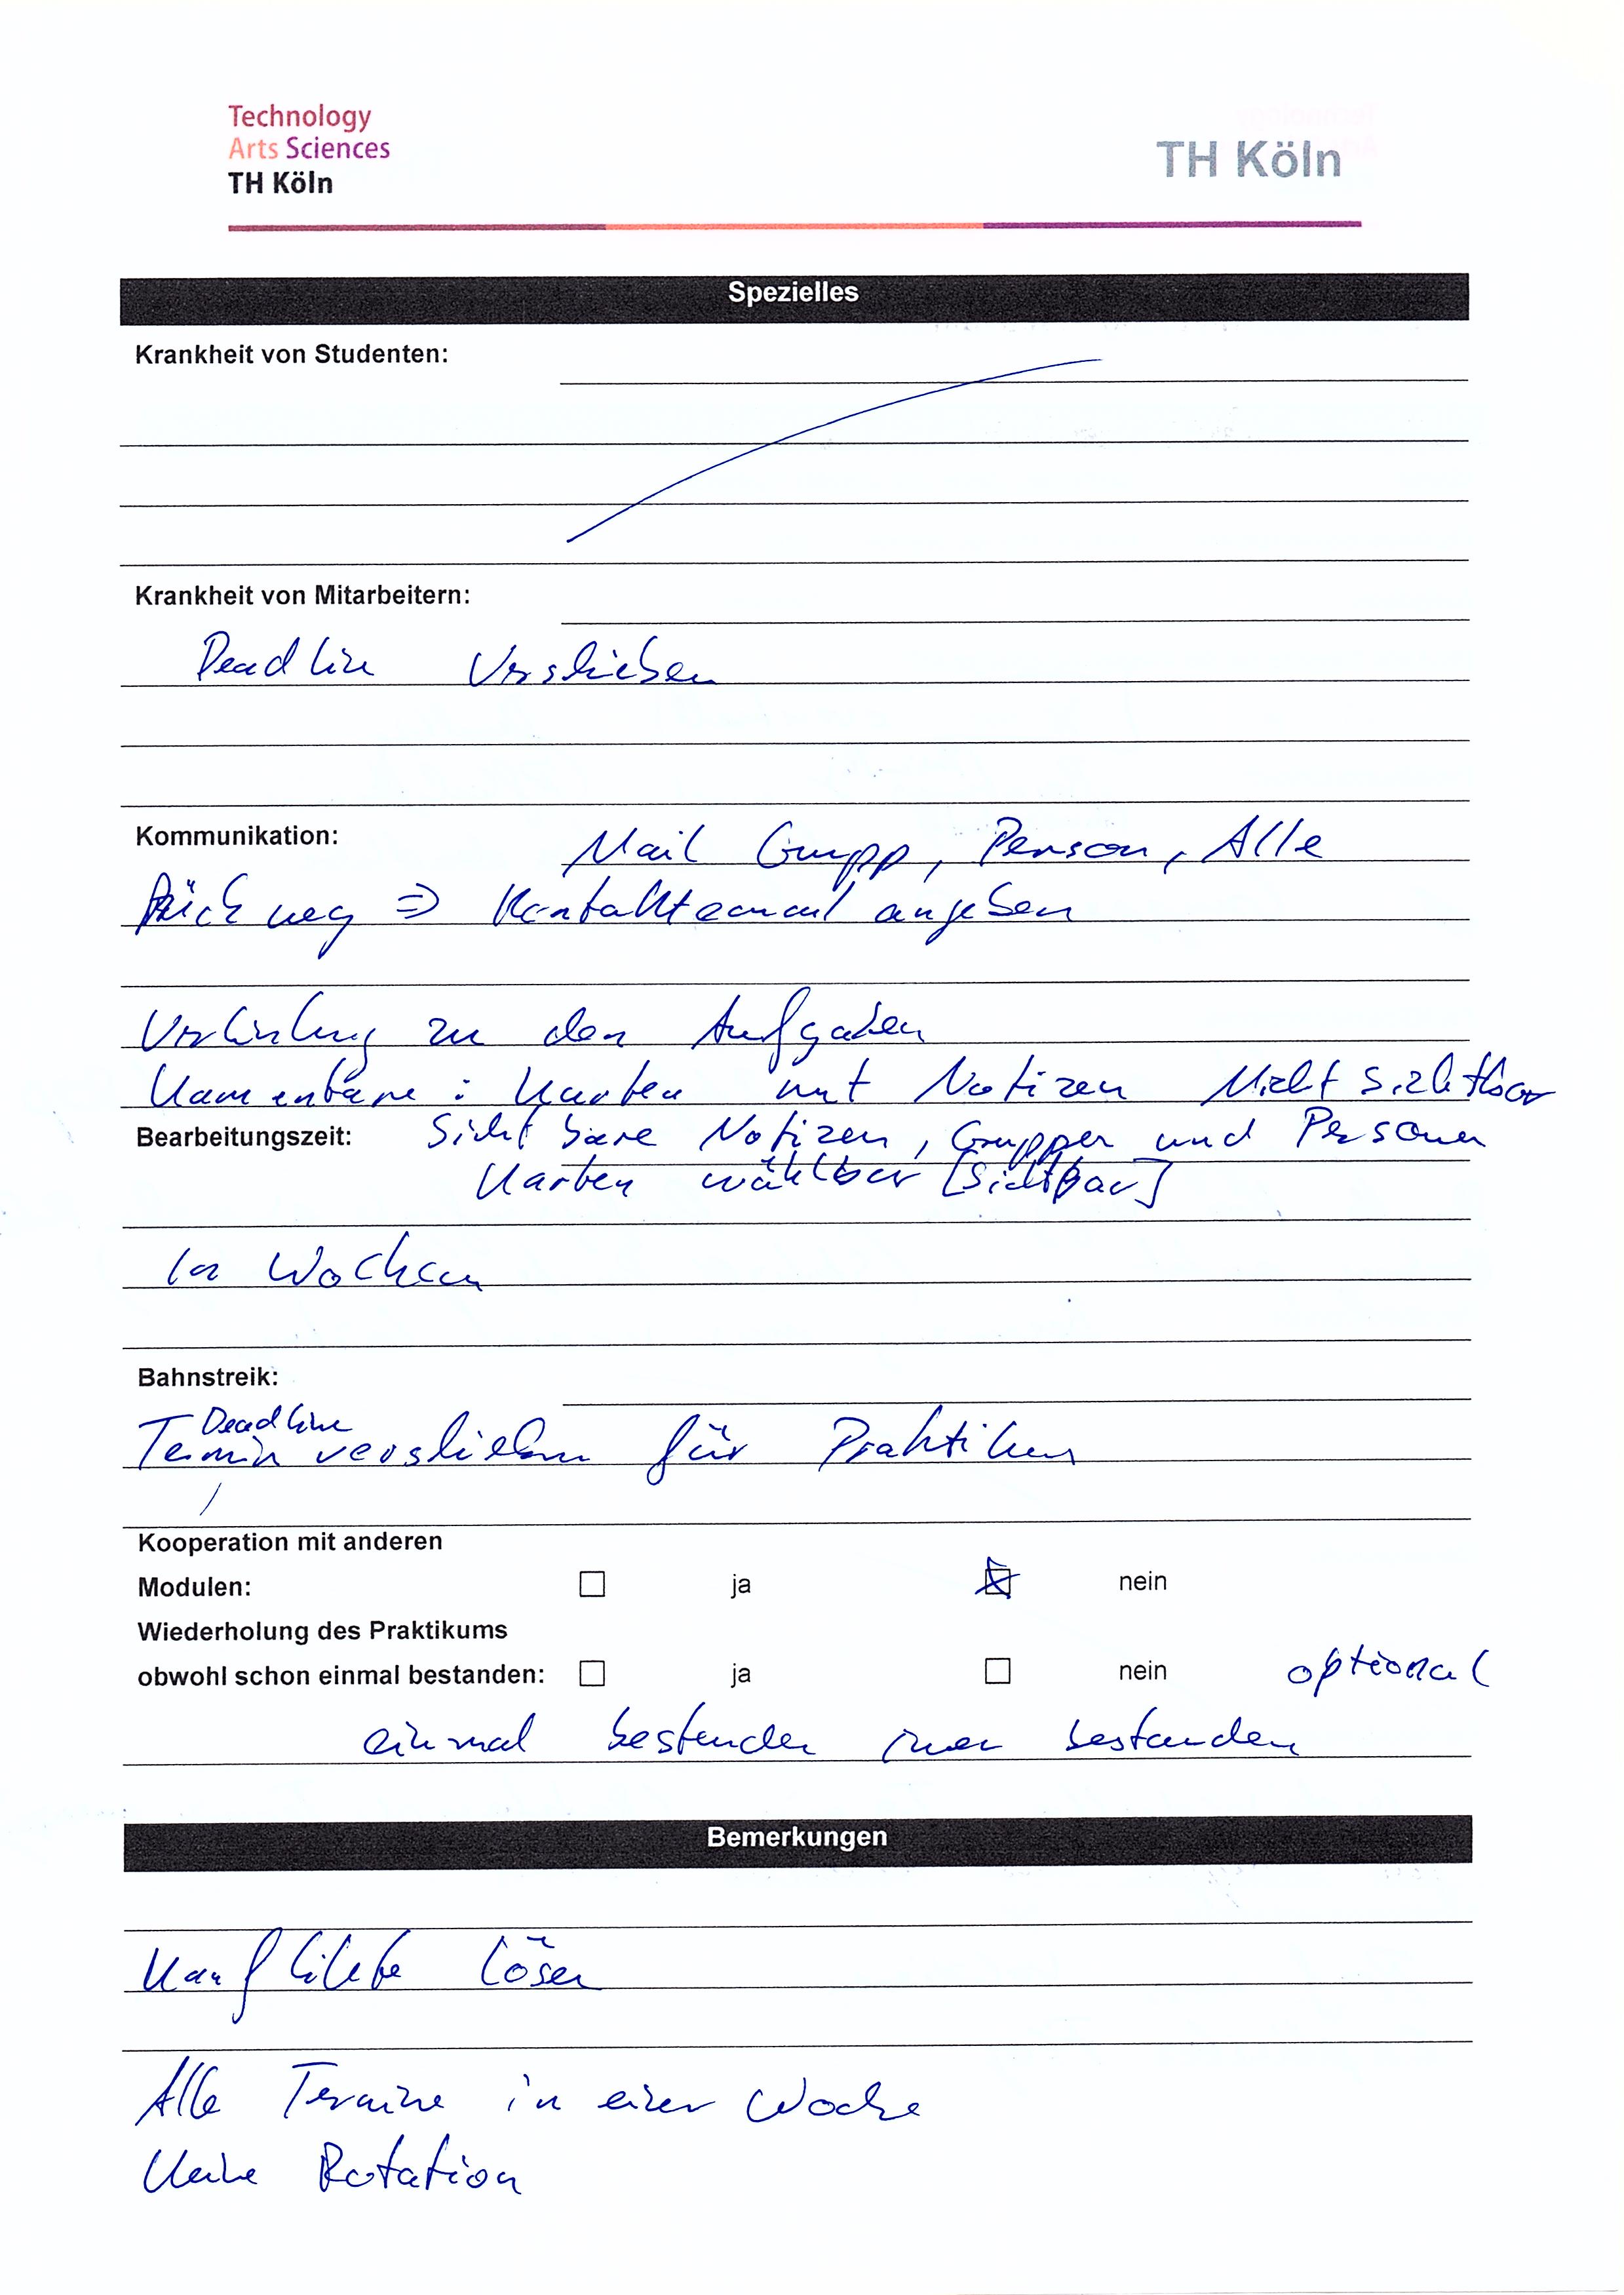 Technology
Arts Sciences
TH Köln
TH Köln
Spezielles
Krankheit von Studenten:
Krankheit von Mitarbeitern:
Deadline Verschieben
Kommunikation: Mail Grupp, Person, Alle
Rückweg => Kontaktemail angeben
zu den Aufgaben
: Karten mit Notizen Nicht sichtbar
Bearbeitungszeit: Sichtbare Notizen, Gruppen und Personen
Karten wählbar [Sichtbar]
In Wochen
Bahnstreik:
Deadline
Termin verschieben für Praktikum
Kooperation mit anderen
Modulen: ja nein
Wiederholung des Praktikums
obwohl schon einmal bestanden: ja nein optional
einmal bestanden immer bestanden
Bemerkungen
Konflikte lösen
Alle Termine in einer Woche
Keine Rotation